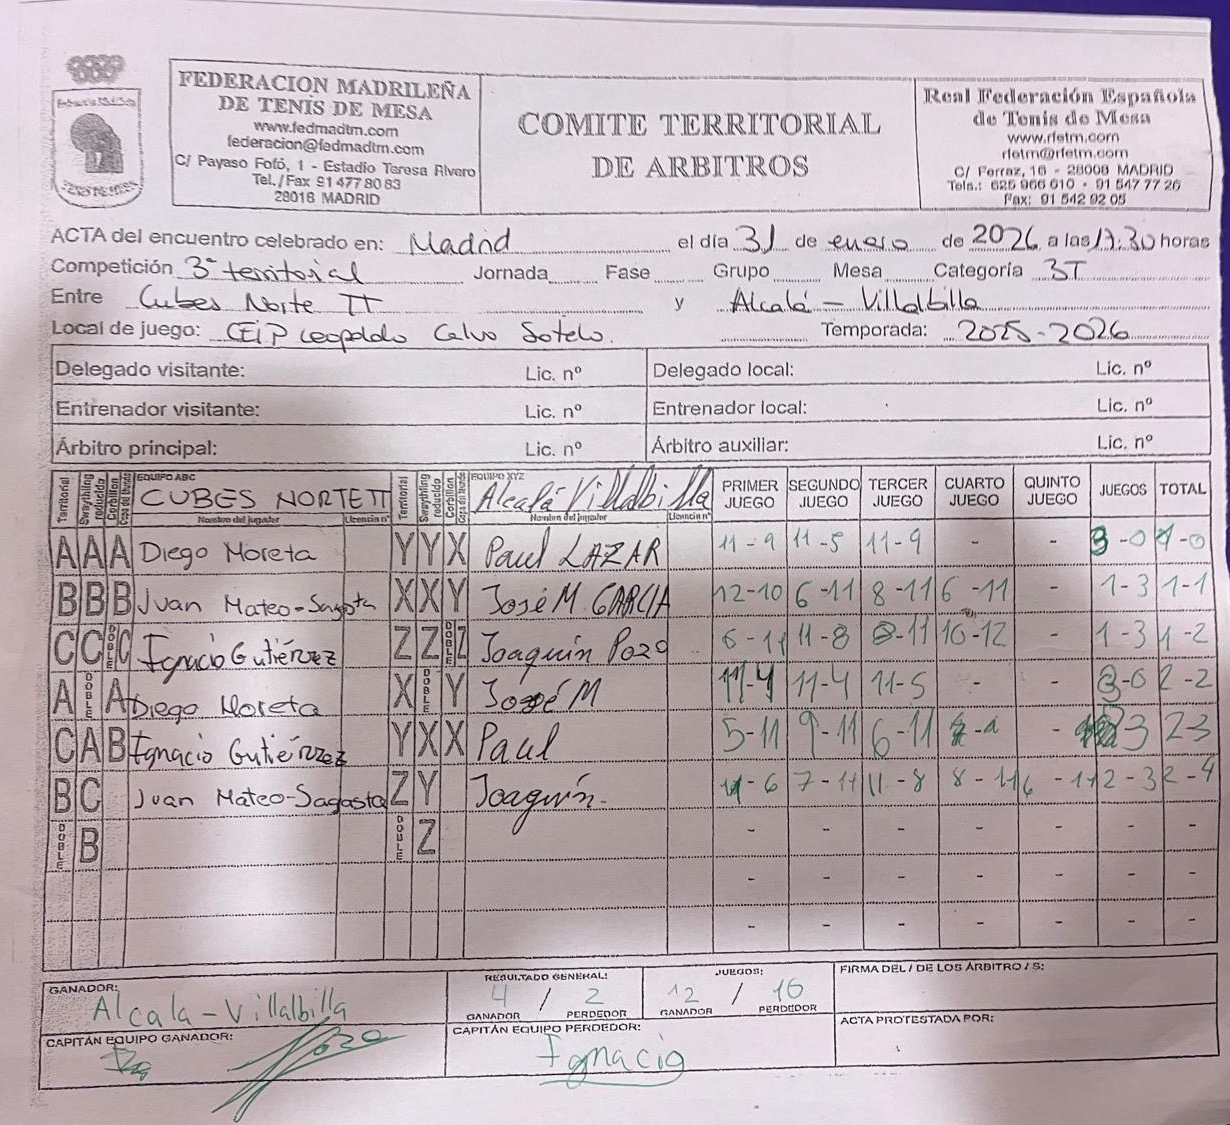 FEDERACION MADRILEÑA
DE TENIS DE MESA
www.fedmadtm.com
federacion@fedmadtm.com
C/ Payaso Fofó, 1 - Estadio Teresa Rivero
Tel./Fax 91 477 80 83
28018 MADRID
COMITE TERRITORIAL
DE ARBITROS
Real Federación Española
de Tenis de Mesa
www.rfetm.com
rfetm@rfetm.com
C/ Ferraz, 16 - 28008 MADRID
Tels.: 625 966 610 - 91 547 77 26
Fax: 91 542 92 05
ACTA del encuentro celebrado en: Madrid el día 31 de enero de 2026 a las 17:30 horas
Competición 3ª territorial Jornada Fase Grupo Mesa Categoría 3T
Entre Cubes Norte TT y Alcalá - Villalbilla
Local de juego: CEIP Leopoldo Calvo Sotelo. Temporada: 2025-2026
Delegado visitante: Lic. nº Delegado local: Lic. nº
Entrenador visitante: Lic. nº Entrenador local: Lic. nº
Árbitro principal: Lic. nº Árbitro auxiliar: Lic. nº
Territorial Swaythling reducido Corbillon Copa del Mundo EQUIPO ABC CUBES NORTE TT Nombre del jugador Licencia nº Territorial Swaythling reducido Corbillon Copa del Mundo EQUIPO XYZ Alcalá Villalbilla Nombre del jugador Licencia nº PRIMER JUEGO SEGUNDO JUEGO TERCER JUEGO CUARTO JUEGO QUINTO JUEGO JUEGOS TOTAL
A A A Diego Moreta Y Y X Paul LAZAR 11-9 11-5 11-9 - - 3-0 1-0
B B B Juan Mateo-Sagasta X X Y José M. GARCIA 12-10 6-11 8-11 6-11 - 1-3 1-1
C C DOBLE C Ignacio Gutiérrez Z Z DOBLE Z Joaquín Pozo 6-11 11-8 8-11 10-12 - 1-3 1-2
A DOBLE A Diego Moreta X DOBLE Y José M 11-4 11-4 11-5 - - 3-0 2-2
C A B Ignacio Gutiérrez Y X X Paul 5-11 9-11 6-11 - - 3 2-3
B C Juan Mateo-Sagasta Z Y Joaquín. 11-6 7-11 11-8 8-11 6-11 2-3 2-4
DOBLE B DOBLE Z - - - - - - -
- - - - - - -
- - - - - - -
GANADOR: Alcala-Villalbilla
RESULTADO GENERAL: 4 / 2 GANADOR PERDEDOR
JUEGOS: 12 / 10 GANADOR PERDEDOR
FIRMA DEL / DE LOS ÁRBITRO / S:
CAPITÁN EQUIPO GANADOR: Pozo
CAPITÁN EQUIPO PERDEDOR: Ignacio
ACTA PROTESTADA POR: